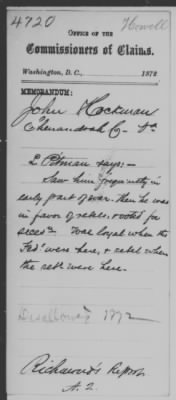 4720 Howell
OFFICE OF THE
Commissioners of Claims.
Washington, D.C., 1872
MEMORANDUM:
John Hockman
Shenandoah Co Va
E Pitman says:-
Saw him frequently in
early part of war. then he was
in favor of rebels, & voted for
secesn. Was loyal when the
Fed's were here, & rebel when
the rebs were here.
Disallowed 1872
Richmond's Report
A. 2.